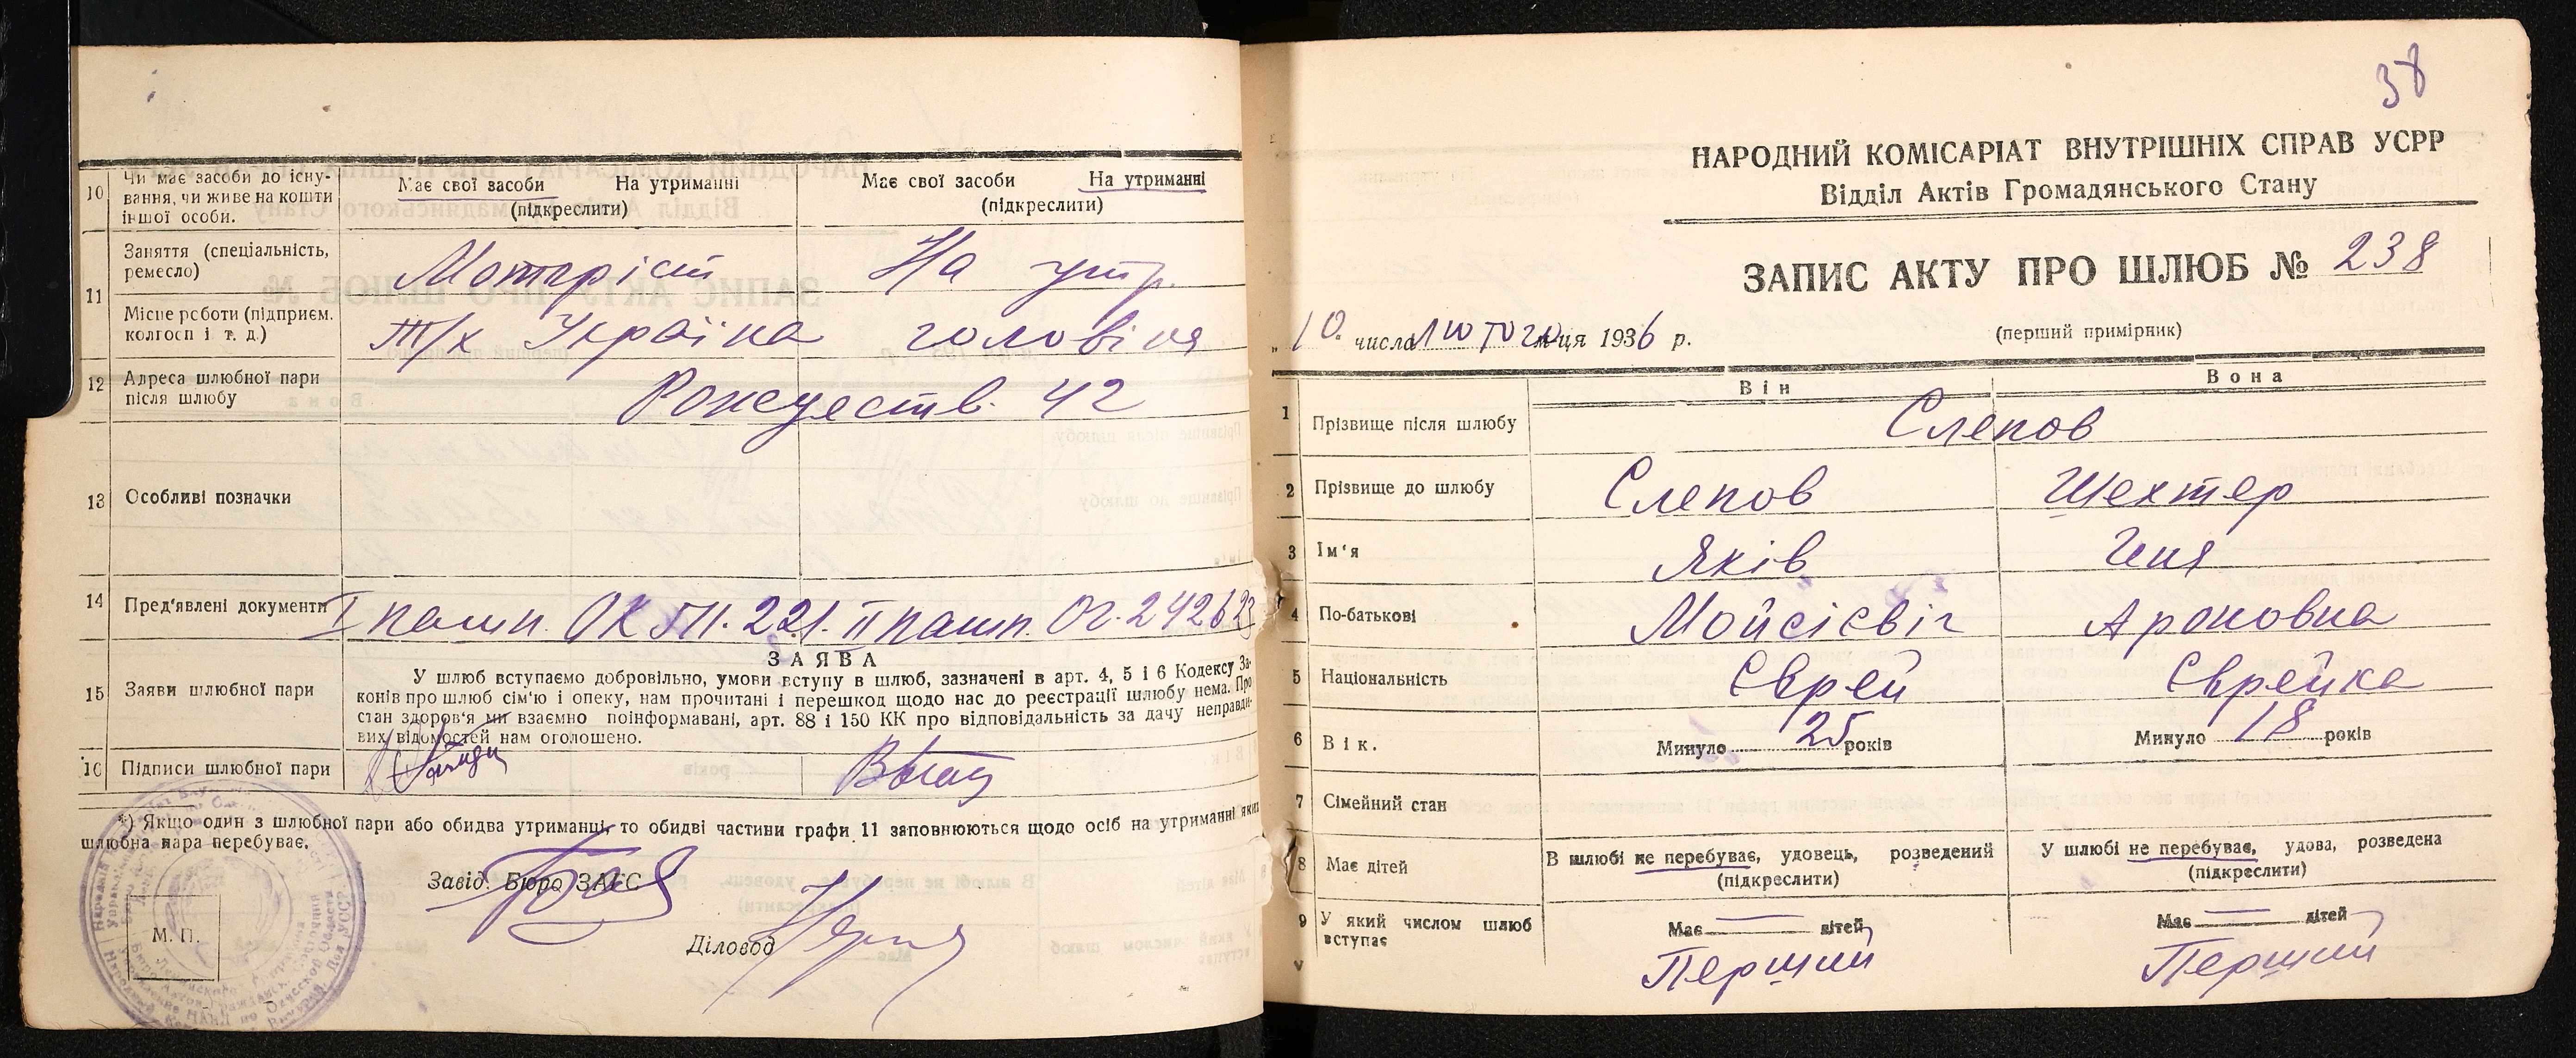 10 Чи має засоби до існу-вання, чи живе на кошти іншої особи.
Має свої засоби На утриманні (підкреслити)
Має свої засоби На утриманні (підкреслити)
11 Заняття (спеціальність, ремесло)
Моторіст
На утр.
Місце роботи (підприєм. колгосп і т. д.)
т/х Україна
головіка
12 Адреса шлюбної пари після шлюбу
Рождеств. 42
13 Особливі позначки
14 Пред'явлені документи
I пашп. ОК 511.221. II пашп. Ог. 242623
15 Заяви шлюбної пари
ЗАЯВА
У шлюб вступаємо добровільно, умови вступу в шлюб, зазначені в арт. 4, 5 і 6 Кодексу За-
конів про шлюб сім'ю і опеку, нам прочитані і перешкод щодо нас до реєстрації шлюбу нема. Про
стан здоров'я ми взаємно поінформавані, арт. 88 і 150 КК про відповідальність за дачу неправди-
вих відомостей нам оголошено.
16 Підписи шлюбної пари
*) Якщо один з шлюбної пари або обидва утриманці, то обидві частини графи 11 заповнюються щодо осіб на утриманні яких
шлюбна пара перебуває.
Завід. Бюро ЗАГС
М. П.
Діловод
38
НАРОДНИЙ КОМІСАРІАТ ВНУТРІШНІХ СПРАВ УСРР
Відділ Актів Громадянського Стану
ЗАПИС АКТУ ПРО ШЛЮБ № 238
„10. числа лютого м-ця 1936 р.
(перший примірник)
Він Вона
1 Прізвище після шлюбу Слепов
2 Прізвище до шлюбу Слепов Шехтер
3 Ім'я Яків
4 По-батькові Мойсієвіч Ароновна
5 Національність Єврей Єврейка
6 Вік. Минуло 25 років Минуло 18 років
7 Сімейний стан
8 Має дітей
В шлюбі не перебуває, удовець, розведений (підкреслити)
У шлюбі не перебуває, удова, розведена (підкреслити)
9 У який числом шлюб вступає
Має — дітей Має — дітей
Перший Перший